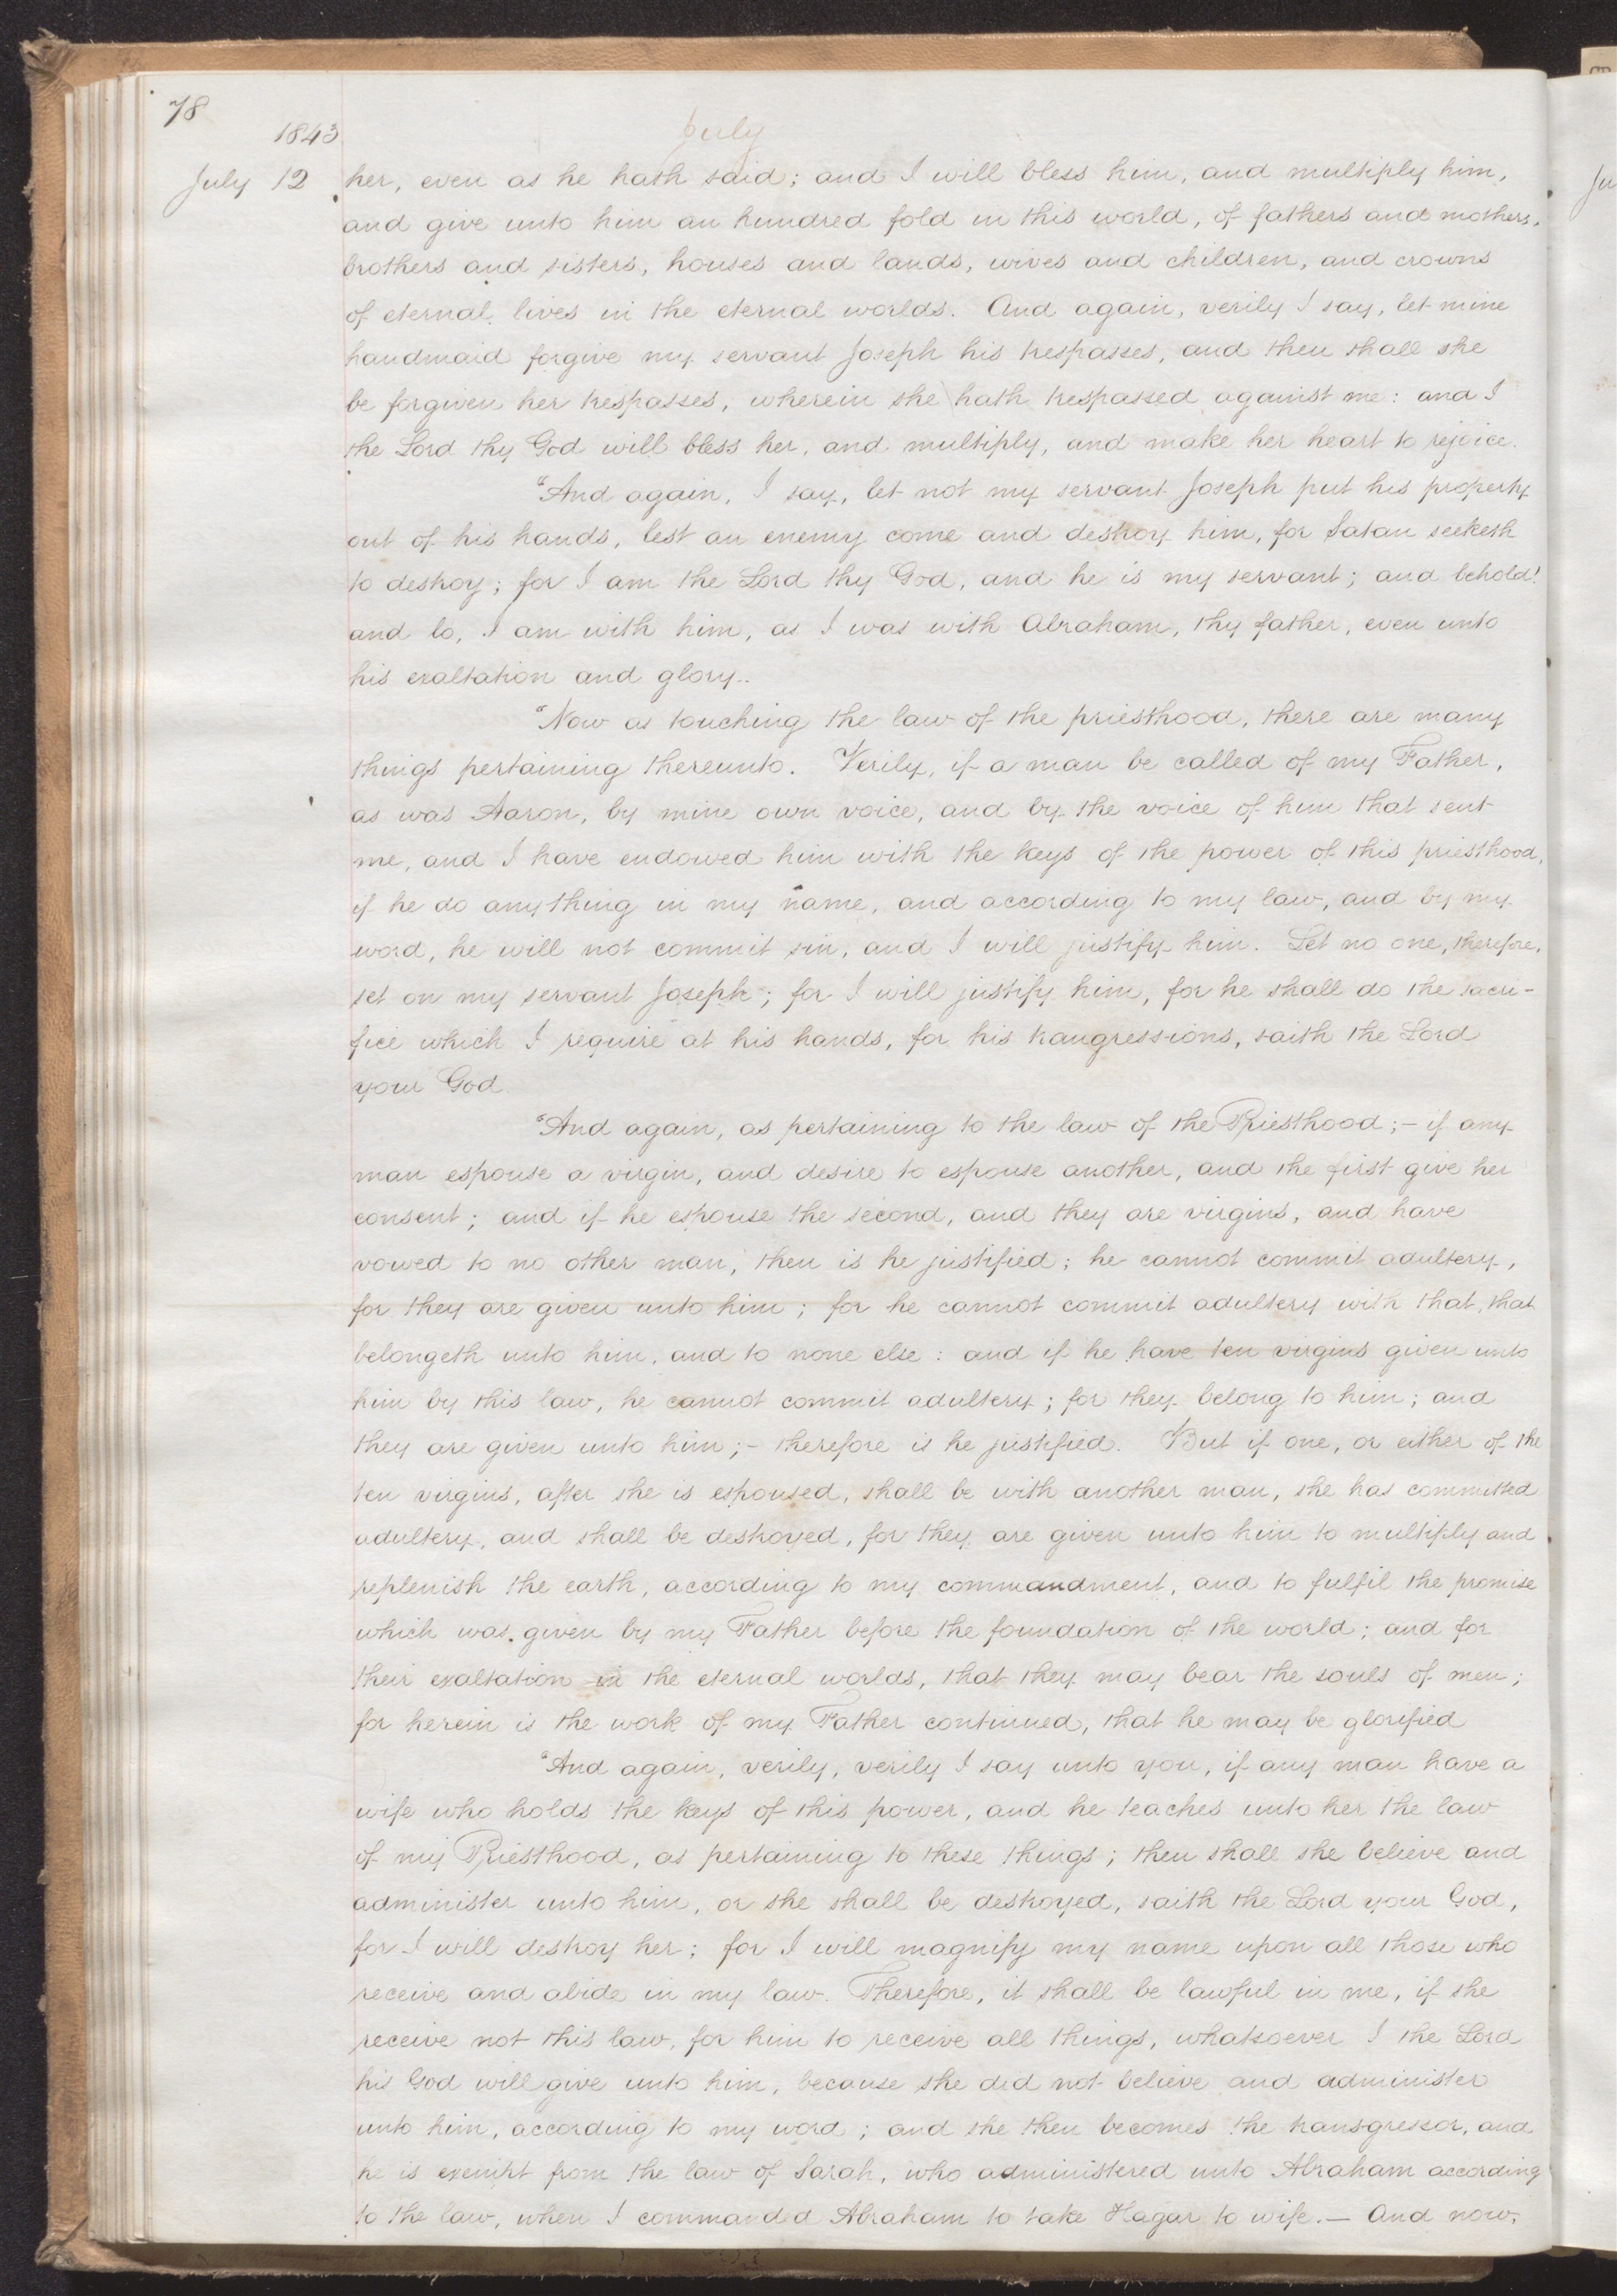 78
1843
July
July 12 her, even as he hath said; and I will bless him, and multiply him,
and give unto him an hundred fold in this world, of fathers and mothers,
brothers and sisters, houses and lands, wives and children, and crowns
of eternal lives in the eternal worlds. And again, verily I say, let mine
handmaid forgive my servant Joseph his trespasses, and then shall she
be forgiven her trespasses, wherein she hath trespassed against me: and I
the Lord thy God will bless her, and multiply, and make her heart to rejoice.
"And again, I say, let not my servant Joseph put his property
out of his hands, lest an enemy come and destroy him, for Satan seeketh
to destroy; for I am the Lord thy God, and he is my servant; and behold!
and lo, I am with him, as I was with Abraham, thy father, even unto
his exaltation and glory.
"Now as touching the law of the priesthood, there are many
things pertaining thereunto. Verily, if a man be called of my Father,
as was Aaron, by mine own voice, and by the voice of him that sent
me, and I have endowed him with the keys of the power of this priesthood,
if he do anything in my name, and according to my law, and by my
word, he will not commit sin, and I will justify him. Let no one, therefore,
set on my servant Joseph; for I will justify him, for he shall do the sacri-
fice which I require at his hands, for his trangressions, saith the Lord
your God.
"And again, as pertaining to the law of the Priesthood;- if any
man espouse a virgin, and desire to espouse another, and the first give her
consent; and if he espouse the second, and they are virgins, and have
vowed to no other man, then is he justified; he cannot commit adultery,
for they are given unto him; for he cannot commit adultery with that, that
belongeth unto him, and to none else: and if he have ten virgins given unto
him by this law, he cannot commit adultery; for they belong to him; and
they are given unto him;- therefore is he justified. But if one, or either of the
ten virgins, after she is espoused, shall be with another man, she has committed
adultery, and shall be destroyed, for they are given unto him to multiply and
replenish the earth, according to my commandment, and to fulfil the promise
which was given by my Father before the foundation of the world; and for
their exaltation in the eternal worlds, that they may bear the souls of men;
for herein is the work of my Father continued, that he may be glorified
"And again, verily, verily I say unto you, if any man have a
wife who holds the keys of this power, and he teaches unto her the law
of my Priesthood, as pertaining to these things; then shall she believe and
administer unto him, or she shall be destroyed, saith the Lord your God,
for I will destroy her; for I will magnify my name upon all those who
receive and abide in my law. Therefore, it shall be lawful in me, if she
receive not this law, for him to receive all things, whatsoever I the Lord
his God will give unto him, because she did not believe and administer
unto him, according to my word; and she then becomes the transgressor, and
he is exempt from the law of Sarah, who administered unto Abraham according
to the law, when I commanded Abraham to take Hagar to wife.— And now,